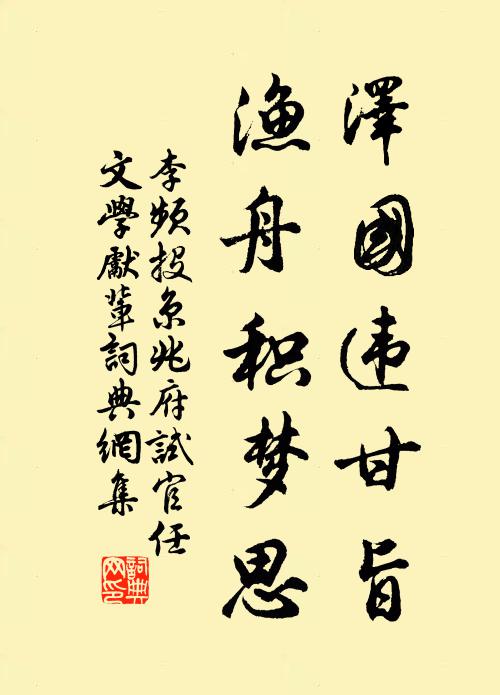 澤國违甘旨
渔舟积梦思
李频投京兆府試官任
文學獻輩詞典網集
詞典网印